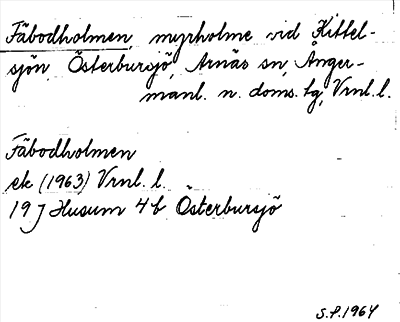 Fäbodholmen, myrholme vid Kittel-
sjön, Österbursjö, Arnäs sn, Ånger-
manl. n. doms. tg, Vrnl. l.
Fäbodholmen
ek (1963) Vrnl. l.
19 J Husum 4b Österbursjö
S.P. 1964